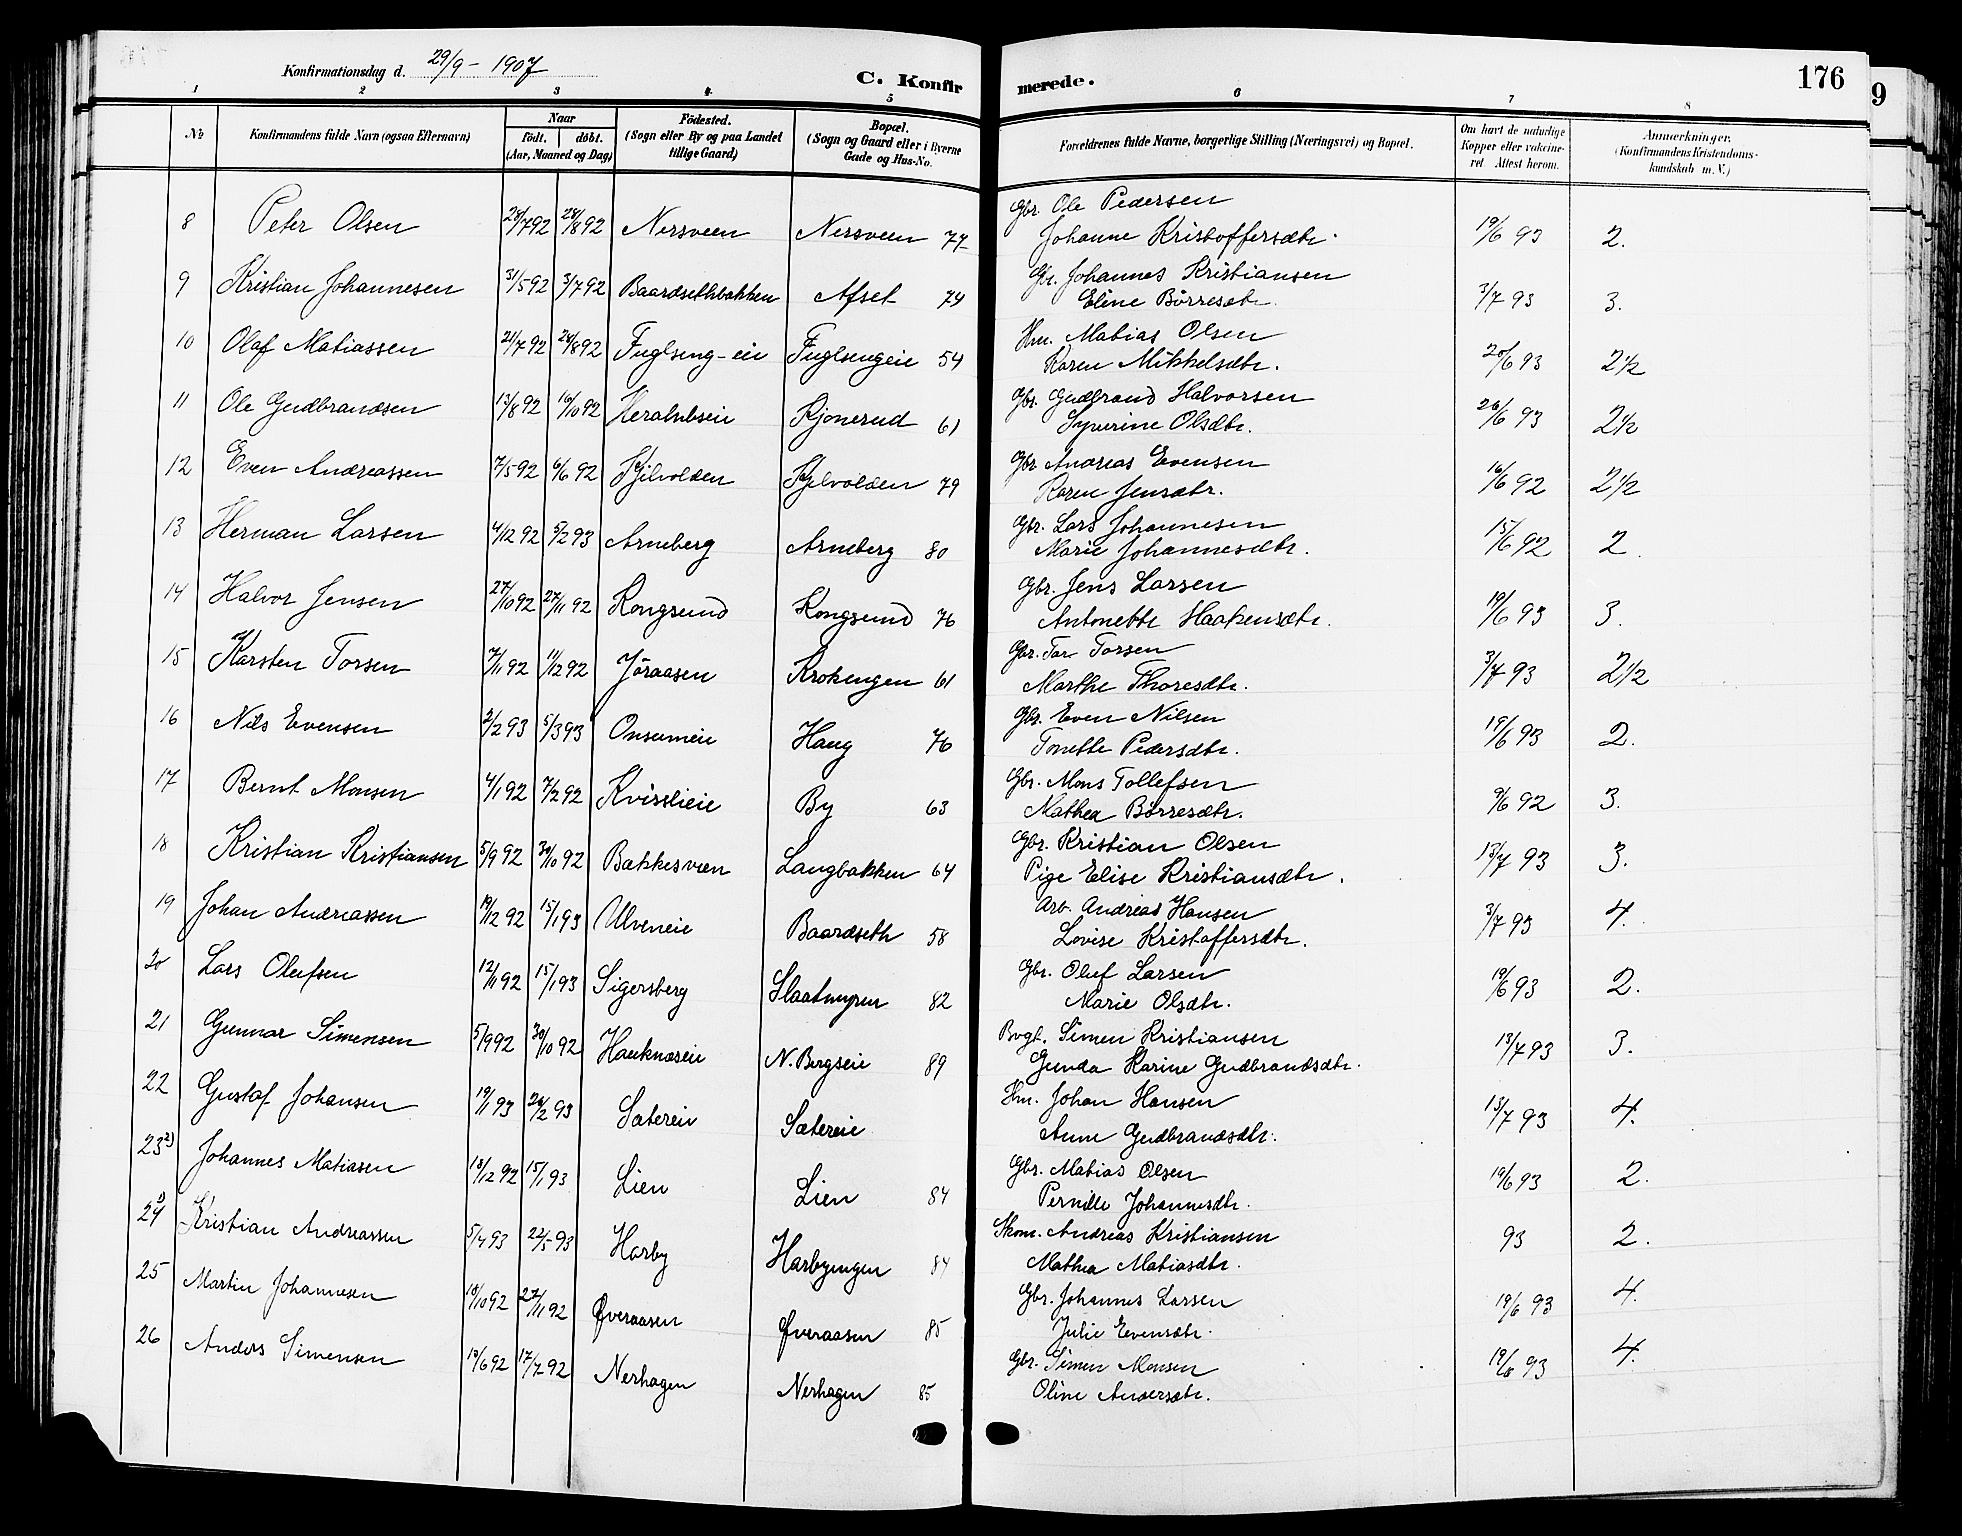 Konfirmationsdag d. 29/9 - 1907
C. Konfirmerede.
176
9
1 2 3 4 5 6 7 8
No
Konfirmandens fulde Navn (ogsaa Efternavn)
Naar
født. døbt.
(Aar, Maaned og Dag)
Fødested.
(Sogn eller By og paa Landet
tillige Gaard)
Bopæl.
(Sogn og Gaard eller i Byerne
Gade og Hus-No.
Forældrenes fulde Navne, borgerlige Stilling (Næringsvei) og Bopæl.
Om havt de naturlige
Kopper eller vakcine-
ret Attest herom.
Anmærkninger,
(Konfirmandens Kristendoms-
kundskab m. V.)
8 Peter Olsen 28/7 92 28/8 92 Nersveen Nersveen 74 Gbr. Ole Pedersen
Johanne Kristoffersdtr. 19/6 93 2.
9 Kristian Johannesen 31/5 92 3/7 92 Baardsethbakken Afset 74 Gbr. Johannes Kristiansen
Eline Børresdtr. 3/7 93 3.
10 Olaf Matiassen 21/7 92 28/8 92 Fuglseng-eie Fuglsengeie 54 Hm. Matias Olsen
Karen Mikkelsdtr. 20/6 93 2 1/2
11 Ole Gudbrandsen 15/8 92 16/10 92 Kjonerud 61 Gbr. Gudbrand Halvorsen
Syverine Olsdtr. 26/6 93 2 1/2
12 Even Andreassen 7/5 92 6/6 92 Kjilvolden Kjelvolden 79 Gbr. Andreas Evensen
Karen Jensdtr. 16/6 92 2 1/2
13 Herman Larsen 4/12 92 5/2 93 Arneberg Arneberg 80 Gbr. Lars Johannesen
Marie Johannesdtr. 15/6 92 2.
14 Halvor Jensen 27/10 92 27/11 92 Kongsund Kongsund 76 Gbr. Jens Larsen
Antonette Haakensdtr. 19/6 93 3.
15 Karsten Torsen 7/11 92 11/12 92 Jøraasen Krokengen 61 Gbr. Tor Torsen
Marthe Thoresdtr. 3/7 93 2 1/2
16 Nils Evensen 2/2 93 5/3 93 Onsumeie Haug 76 Gbr. Even Nilsen
Tonette Pedersdtr. 19/6 93 2.
17 Bernt Monsen 4/1 92 7/2 92 Kvisslieie By 63 Gbr. Mons Tollefsen
Mathea Børresdtr. 9/6 92 3.
18 Kristian Kristiansen 5/9 92 30/10 92 Bækkesveen Langbakken 64 Gbr. Kristian Olsen
Pige Elise Kristiansdtr. 13/7 93 3.
19 Johan Andreassen 19/12 92 15/1 93 Ulveneie Baardseth 58 Arb. Andreas Hansen
Lovise Kristoffersdtr. 3/7 93 4.
20 Lars Olufsen 12/11 92 15/1 93 Sigersberg Slaatmyren 82 Gbr. Oluf Larsen
Marie Olsdtr. 19/6 93 2.
21 Gunnar Simensen 5/9 92 30/10 92 Hauknæseie N. Bergseie 89 Bvgt. Simen Kristiansen
Gunda Karine Gudbrandsdtr. 13/7 93 3.
22 Gustaf Johansen 19/1 93 26/2 93 Sætereie Sætereie Hm. Johan Hansen
Anne Gudbrandsdtr. 13/7 93 4.
23 2) Johannes Matiasen 18/12 92 15/1 93 Lien Lien 84 Gbr. Matias Olsen
Pernille Johannesdtr. 19/6 93 2.
24 Kristian Andreassen 5/4 93 22/5 93 Harby Harbyengen 84 Skom. Andreas Kristiansen
Mathea Matiasdtr. 93 2.
25 Martin Johannesen 18/10 92 27/11 92 Øveraasen Øveraasen 85 Gbr. Johannes Larsen
Julie Evensdtr. 19/6 93 4.
26 Anders Simensen 15/6 92 17/7 92 Nerhagen Nerhagen 85 Gbr. Simen Monsen
Oline Andersdtr. 19/6 93 4.